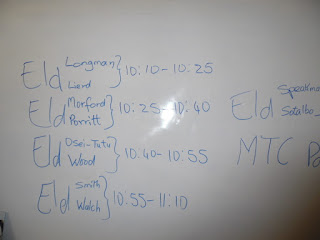 Eld Longman } 10:10-10:25
Lierd
Eld Morford } 10:25-10:40
Porritt
Eld Osei-Tutu } 10:40-10:55
Wood
Eld Smith } 10:55-11:10
Walch
Eld Speakman
MTC